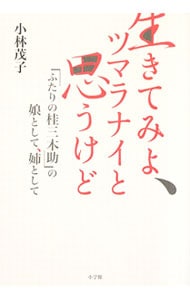 生きてみよ、
ツマラナイと
思うけど
『ふたりの桂三木助』の
娘として、姉として
小林茂子
小学館